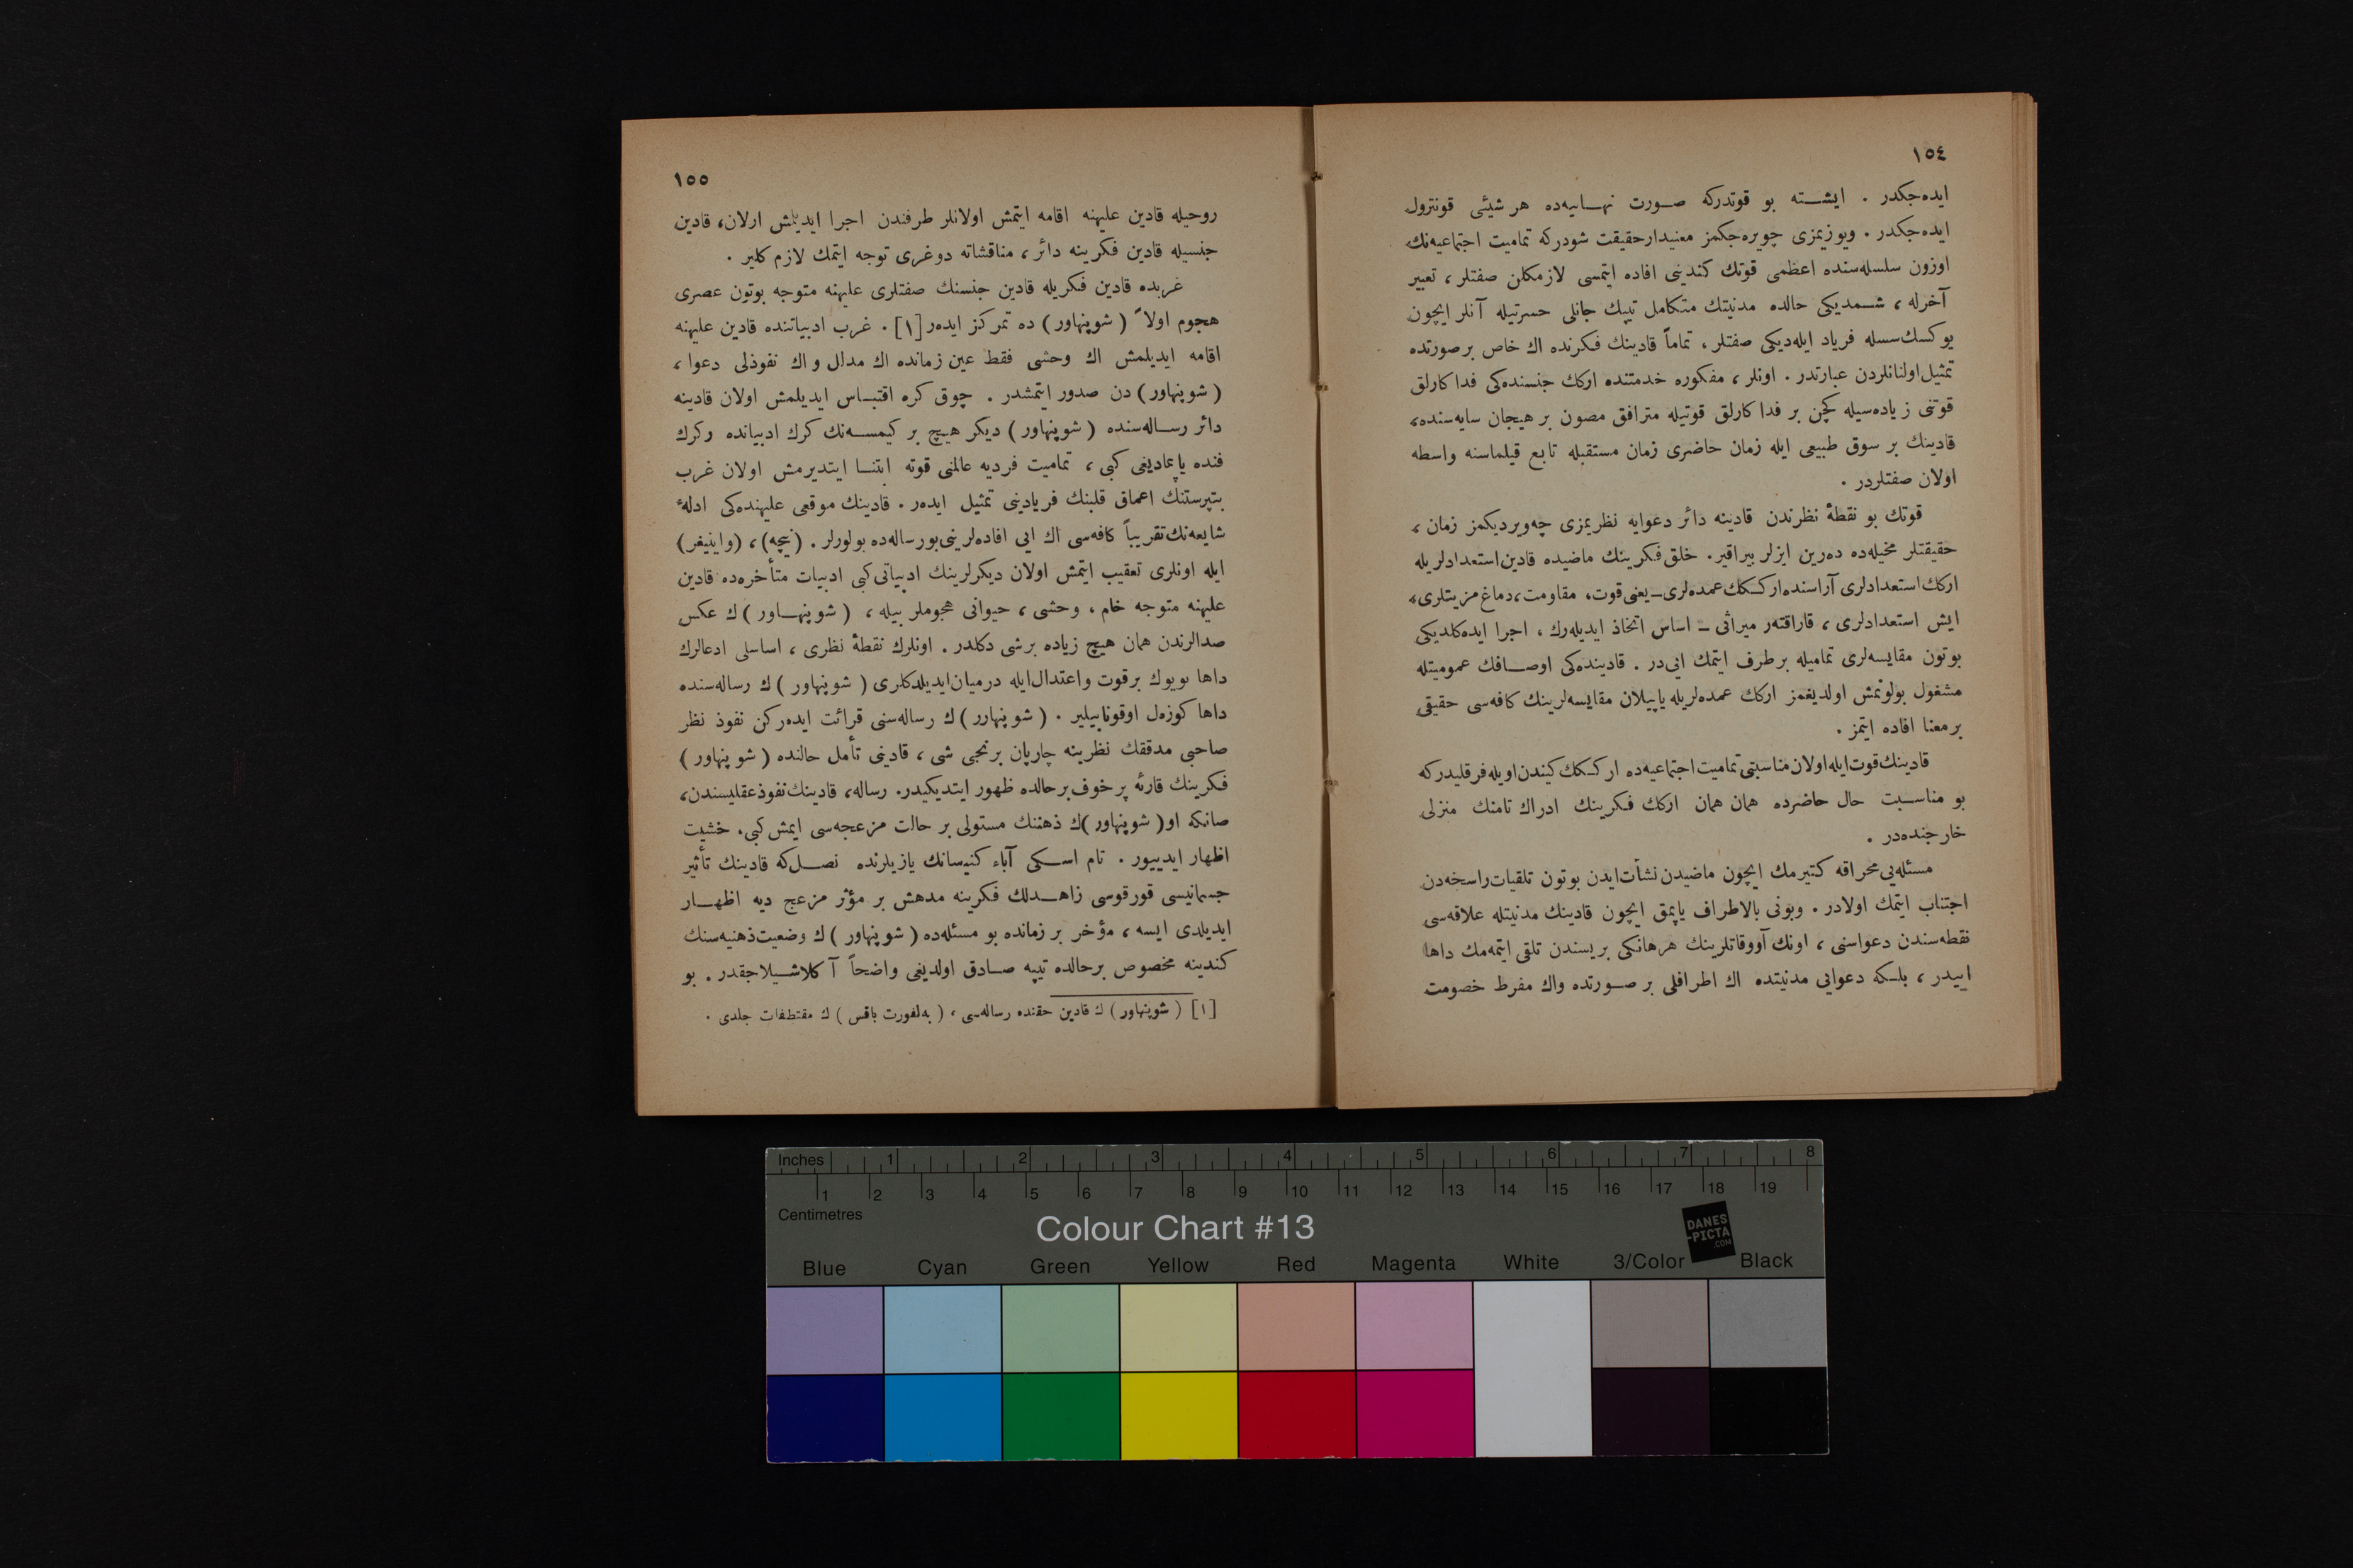 ١٥٤
ايده‌جكدر . ايشــته بو قوتدركه صــورت نهــائيه‌ده هر شيئى قونترول
ايده‌جكدر . ويوزيمزى چويره‌جكمز معنيدار حقيقت شودركه تماميت اجتماعيه‌نك
اوزون سلسله‌سنده اعظمى قوتك كندينى افاده ايتمسى لازمكلن صفتلر ، تعبير
آخرله ، شــمديكى حالده مدنيتك متكامل تيپك جانلى حسرتيله آنلر ايچون
يوكسك سسله فرياد ايله‌ديكى صفتلر ، تماماً قادينك فكرنده اك خاص بر صورتده
تمثيل اولنانلردن عبارتدر . اونلر ، مفكوره خدمتنده اركك جنسنده‌كى فداكارلق
قوتنى زياده‌سيله كچن بر فداكارلق قوتيله مترافق مصون بر هيجان سايه‌سنده ،
قادينك بر سوق طبيعى ايله زمان حاضرى زمان مستقبله تابع قيلماسنه واسطه
اولان صفتلردر .
قوتك بو نقطۀ نظرندن قادينه دائر دعوايه نظريمزى چه‌ويرديكمز زمان ،
حقيقتلر مخيله‌ده ده‌رين ايزلر بيراقير . خلق فكرينك ماضيده قادين استعدادلريله
اركك استعدادلرى آراسنده اركـكك عمده‌لرى ـ يعنى قوت ، مقاومت ، دماغ مزيتلرى ،
ايش استعدادلرى ، قاراقتەر ميراثى ـ اساس اتخاذ ايديله‌رك ، اجرا ايده‌كلديكى
بوتون مقايسه‌لرى تماميله برطرف ايتمك ايى‌در . قادينده‌كى اوصــافك عموميتله
مشغول بولونمش اولديغمز اركك عمده‌لريله ياپيلان مقايسه‌لرينك كافه‌سى حقيقى
بر معنا افاده ايتمز .
قادينك قوت ايله اولان مناسبتى تماميت اجتماعيه‌ده اركـكك كيندن اويله فرقليدركه
بو مناســبت حال حاضرده همان همان اركك فكرينك ادراك تامنك منزلى
خارجنده‌در .
مسئله‌يى محراقه كتيرمك ايچون ماضيدن نشأت ايدن بوتون تلقيات راسخه‌دن
اجتناب ايتمك اولادر . وبونى بالاطراف ياپمق ايچون قادينك مدنيتله علاقه‌سى
نقطه‌سندن دعواسنى ، اونك آووقاتلرينك هرهانكى بريسندن تلقى ايتمه‌مك داها
اييدر ، بلـكه دعوايى مدنيتده اك اطرافلى بر صــورتده واك مفرط خصومت
١٥٥
روحيله قادين عليهنه اقامه ايتمش اولانلر طرفندن اجرا ايديلمش اولان ، قادين
جنسيله قادين فكرينه دائر ، مناقشاته دوغرى توجه ايتمك لازم كلير .
غربده قادين فكريله قادين جنسنك صفتلرى عليهنه متوجه بوتون عصرى
هجوم اولاً ( شوپنهاور ) ده تمركز ايده‌ر [١] . غرب ادبياتنده قادين عليهنه
اقامه ايديلمش اك وحشى فقط عين زمانده اك مدلل و اك نفوذلى دعوا ،
( شوپنهاور ) دن صدور ايتمشدر . چوق كره اقتبــاس ايديلمش اولان قادينه
دائر رســاله‌سنده ( شوپنهاور ) ديكر هيچ بر كيمســه‌نك كرك ادبياتده وكرك
فنده ياپمــاديغى كبى ، تماميت فرديه عالمنى قوته ابتنــا ايتديرمش اولان غرب
بتپرستنك اعماق قلبنك فريادينى تمثيل ايده‌ر . قادينك موقعى عليهنده‌كى ادلۀ
شايعه‌نك تقريباً كافه‌سى اك ايى افاده‌لرينى بورساله‌ده بولورلر . ( نيچه ) ، ( واينيغر )
ايله اونلرى تعقيب ايتمش اولان ديكرلرينك ادبياتى كبى ادبيات متأخره‌ده قادين
عليهنه متوجه خام ، وحشى ، حيوانى هجوملر بيله ، ( شوپنهــاور ) ك عكس
صدالرندن همان هيچ زياده برشى دكلدر . اونلرك نقطۀ نظرى ، اساسلى ادعالرك
داها بويوك برقوت واعتدال ايله درميان ايديلدكلرى ( شوپنهاور ) ك رساله‌سنده
داها كوزه‌ل اوقونابيلير . ( شوپنهاور ) ك رساله‌سنى قرائت ايده‌ركن نفوذ نظر
صاحبى مدققك نظرينه چارپان برنجى شى ، قادينى تأمل حالنده ( شوپنهاور )
فكرينك قارئه پر خوف بر حالده ظهور ايتديكيدر . رساله ، قادينك نفوذ عقليسندن ،
صانكه او ( شوپنهاور ) ك ذهننك مستولى بر حالت مزعجه‌سى ايمش كبى ، خشيت
اظهار ايدييور . تام اسـكى آباء كنيسانك يازيلرنده نصــل كه قادينك تأثير
جسمانيسى قورقوسى زاهــدلك فكرينه مدهش بر مؤثر مزعج ديه اظهــار
ايديلدى ايسه ، مؤخر بر زمانده بو مسئله‌ده ( شوپنهاور ) ك وضعيت ذهنيه‌سنك
كندينه مخصوص برحالده تيپه صــادق اولديغى واضحاً آكلاشــيلاجقدر . بو
[١] ( شوپنهاور ) ك قادين حقنده رساله‌سى ، ( به‌لفورت باقس ) ك مقتطفات جلدى .
Inches 1 2 3 4 5 6 7 8
1 2 3 4 5 6 7 8 9 10 11 12 13 14 15 16 17 18 19
Centimetres
Colour Chart #13
DANES
-PICTA
.COM
Blue Cyan Green Yellow Red Magenta White 3/Color Black